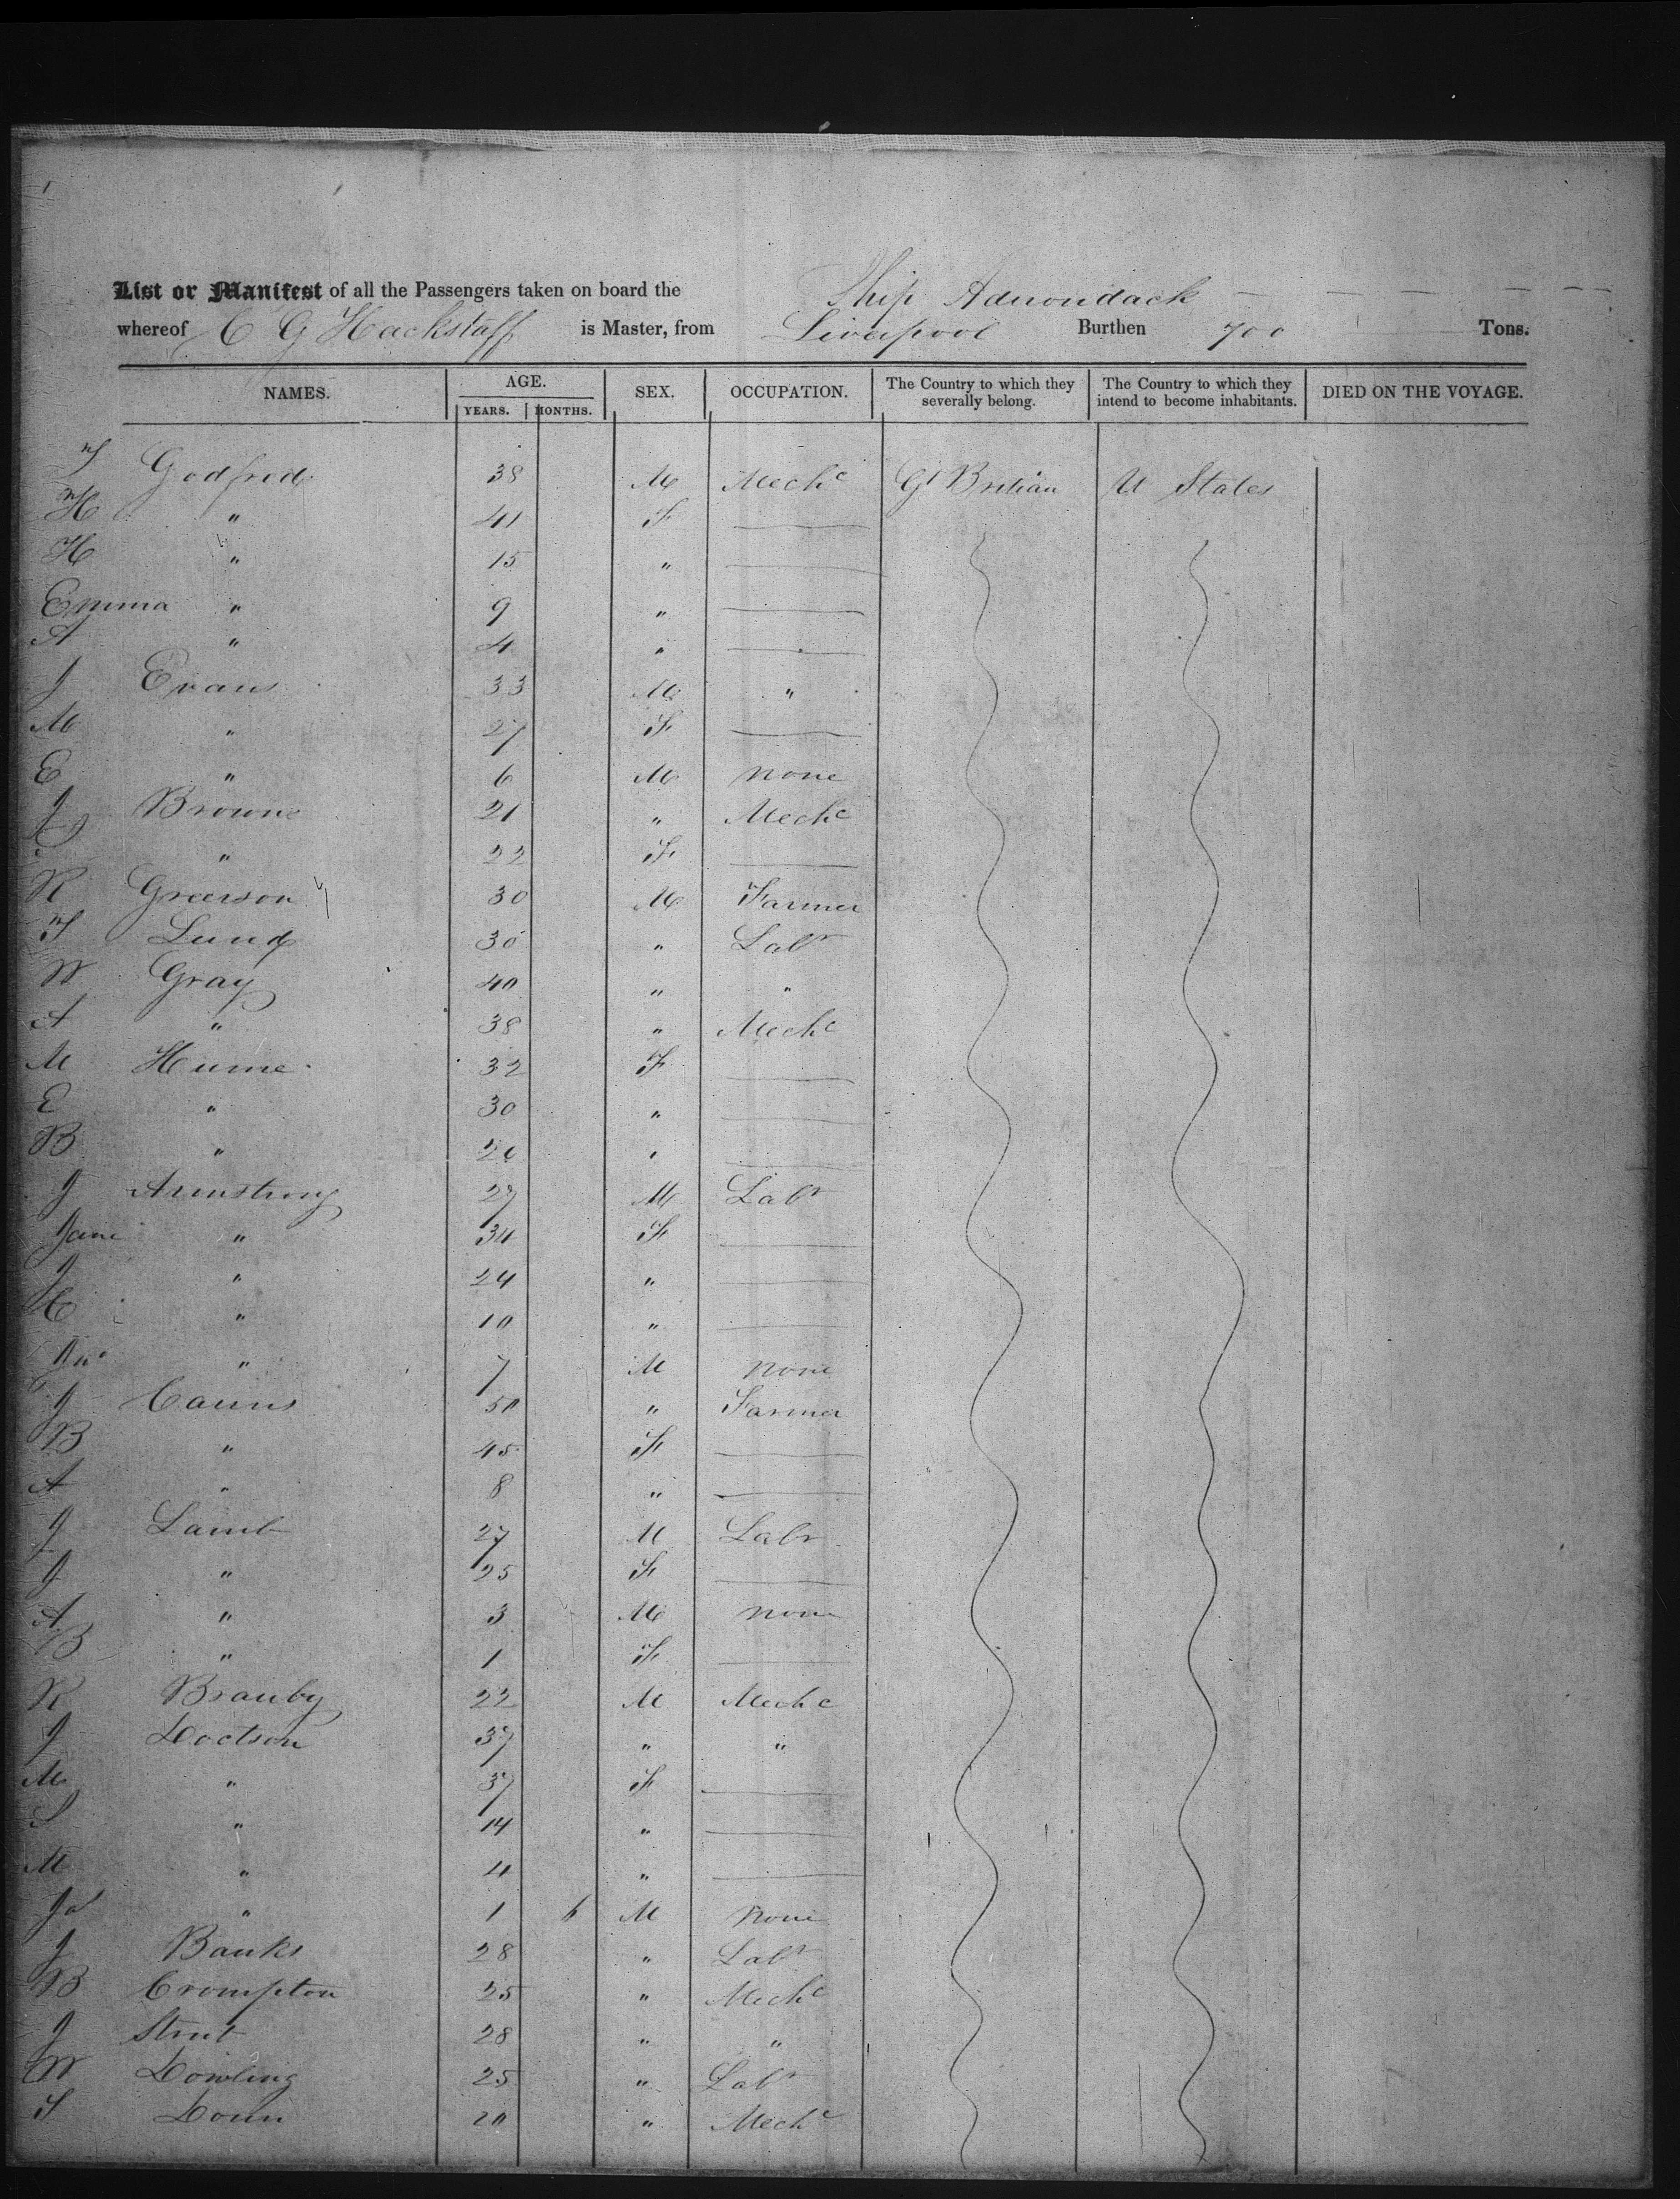 List or Manifest of all the Passengers taken on board the Ship Adirondack
whereof C G Hackstaff is Master, from Liverpool Burthen 700 Tons.
NAMES. AGE. SEX. OCCUPATION. The Country to which they severally belong. The Country to which they intend to become inhabitants. DIED ON THE VOYAGE.
YEARS. MONTHS.
T Godfred 38 M Mechc Gt Britian U States
H " 41 F
H " 15 "
Emma " 9 "
A " 4 "
J Evans 33 M "
M " 27 F
E " 6 M none
J Browne 21 " Mechc
" 22 F
R Greerson 30 M Farmer
T Lund 30 " Labr
W Gray 40 " "
A " 38 " Mechc
M Hume 32 F
E " 30 "
B " 26 "
J Armstrong 27 M Labr
Jane " 34 F
J " 24 "
C " 10 "
Jno " 7 M none
J Cairns 50 " Farmer
B " 45 F
A " 8 "
J Lamb 27 M Labr
J " 25 F
A " 3 M none
B " 1 F
R Branby 22 M Mechc
J Doctson 37 " "
M " 37 F
S " 14 "
M " 4 "
Js " 1 6 M none
J Banks 28 " Labr
B Crompton 25 " Mechc
J Strut 28 " "
W Dowling 25 " Labr
T Donn 20 " Mechc